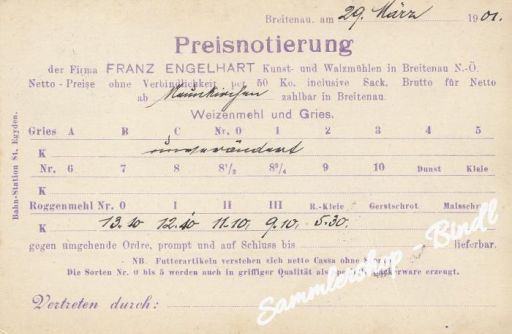 Breitenau, am 29. März 1901.
Preisnotierung
der Firma FRANZ ENGELHART Kunst- und Walzmühlen in Breitenau N.-Ö.
Netto-Preise ohne Verbindlichkeit per 50 Ko. inclusive Sack, Brutto für Netto
ab Neunkirchen zahlbar in Breitenau.
Weizenmehl und Gries.
Gries A B C Nr. 0 1 2 3 4 5
K unverändert
Nr. 6 7 8 8½ 8¾ 9 10 Dunst Kleie
K
Roggenmehl Nr. 0 I II III R.-Kleie Gerstschrot Maisschrot
K 13.10 12.40 11.10. 9.10. 5.30.
gegen umgehende Ordre, prompt und auf Schluss bis lieferbar.
NB. Futterartikeln verstehen sich netto Cassa ohne
Die Sorten Nr. 0 bis 5 werden auch in griffiger Qualität als erzeugt.
Vertreten durch:
Bahn-Station St. Egyden.
Sammlershop - Bindl